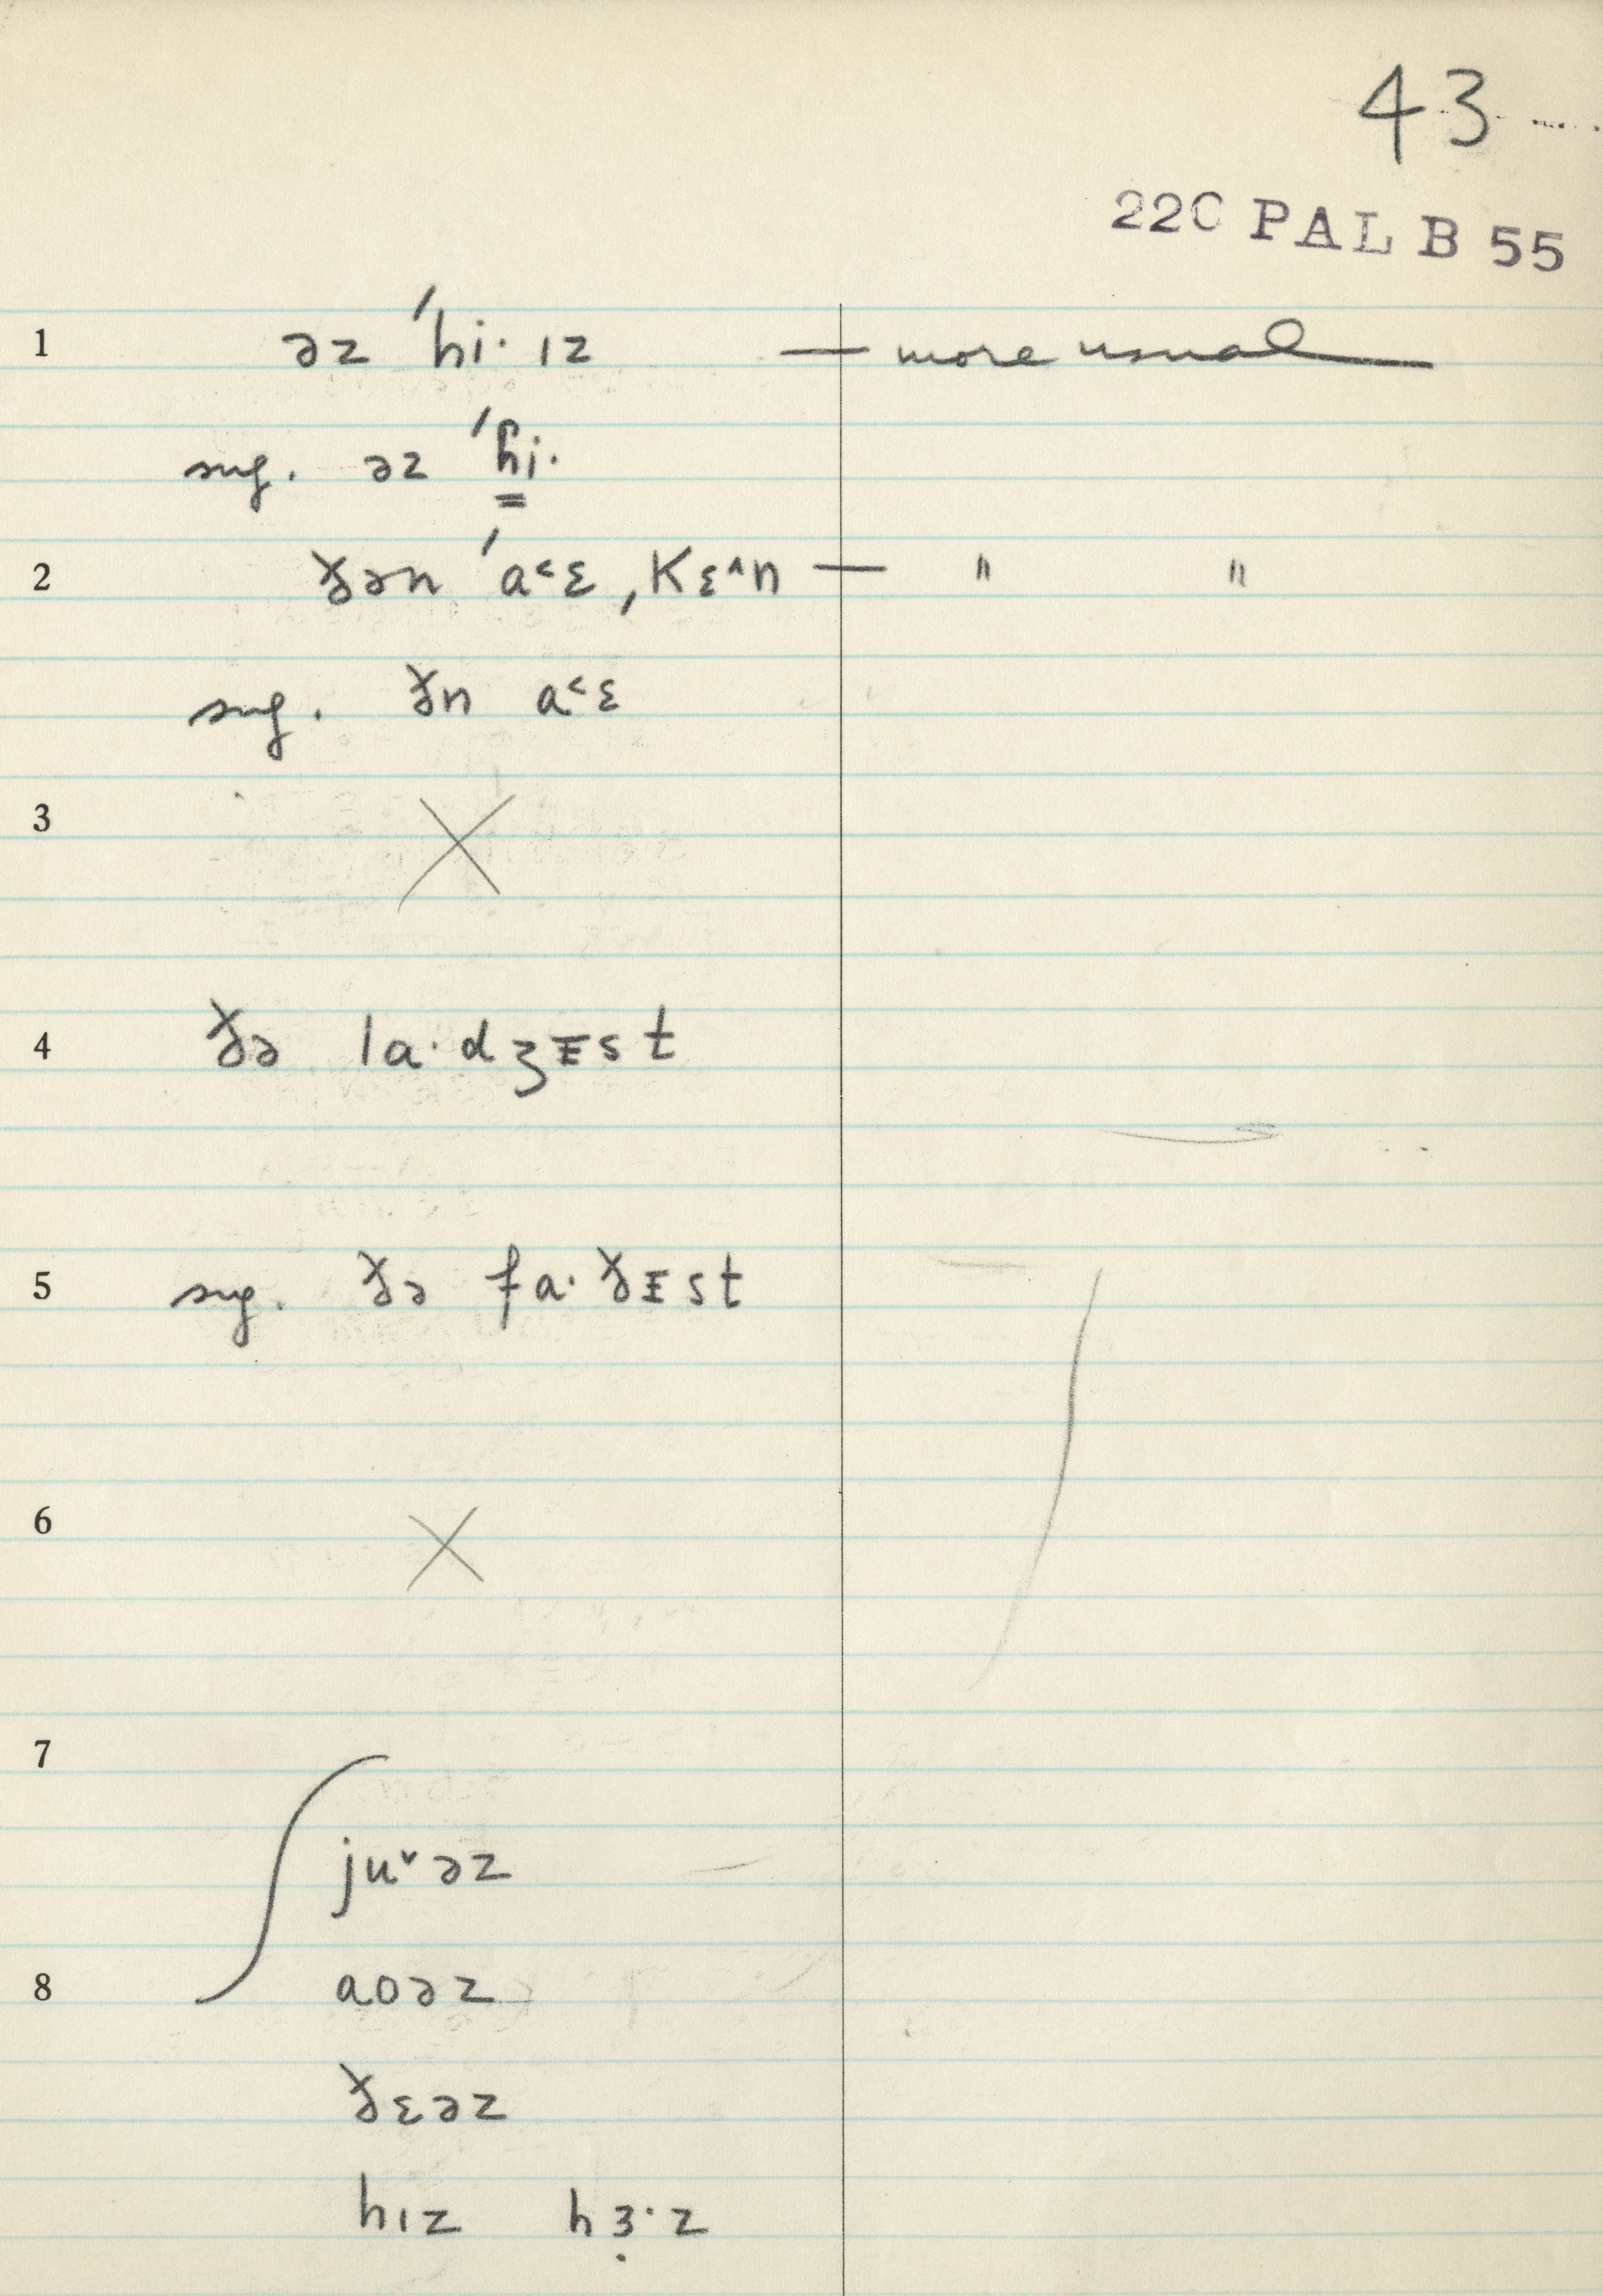 43
220 PAL B 55
1 əz ˈhi· ɪz — more usual
sug. əz ˈhi·
2 ðən ˈa˂ɛ, Kɛ˄n — " "
sug. ðn a˂ɛ
3 X
4 ðə la·dʒɪst
5 sug. ðə fa·ðɪst
6 X
7
ju˅əz
8 aoəz
ðɛəz
hɪz hɜ̣·z